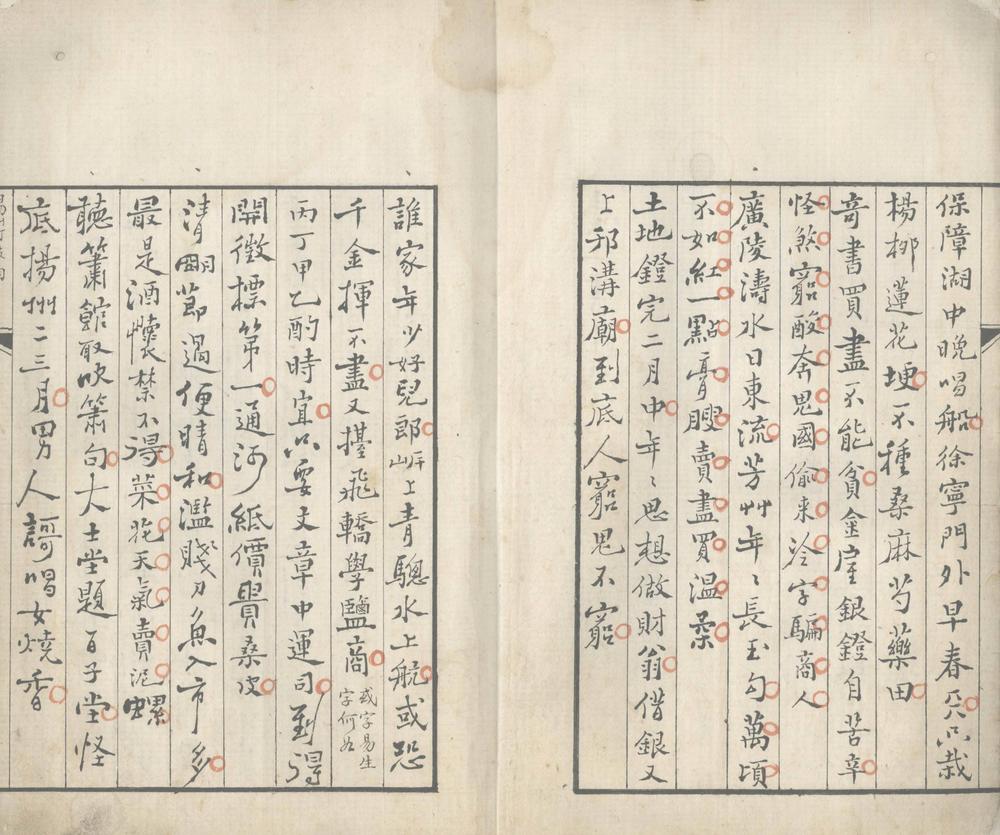 保障湖中晚唱船徐寧門外早春天只栽
楊柳蓮花埂不種桑麻芍藥田
奇書買盡不能貧金屋銀鐙自苦辛
怪煞窮酸奔鬼國偷来冷字騙商人
廣陵濤水日東流芳艸年〻長玉勾萬頃
不如紅一點膏腴賣盡買温柔
土地鐙完二月中年〻思想做財翁借銀又
上邗溝廟到底人窮鬼不窮
誰家年少好兒郎岍上青驄水上航或恐
千金揮不盡又擡飛轎學鹽商
或字易生
字何如
丙丁甲乙酌時宜只要文章中運司到得
開徵標第一通河紙價貴桑皮
清明節過便晴和濫賤刀魚入市多
最是酒懷禁不得菜花天氣賣泥螺
聽簫館取吹簫句大士堂題百子堂怪
底揚州二三月男人謌唱女燒香